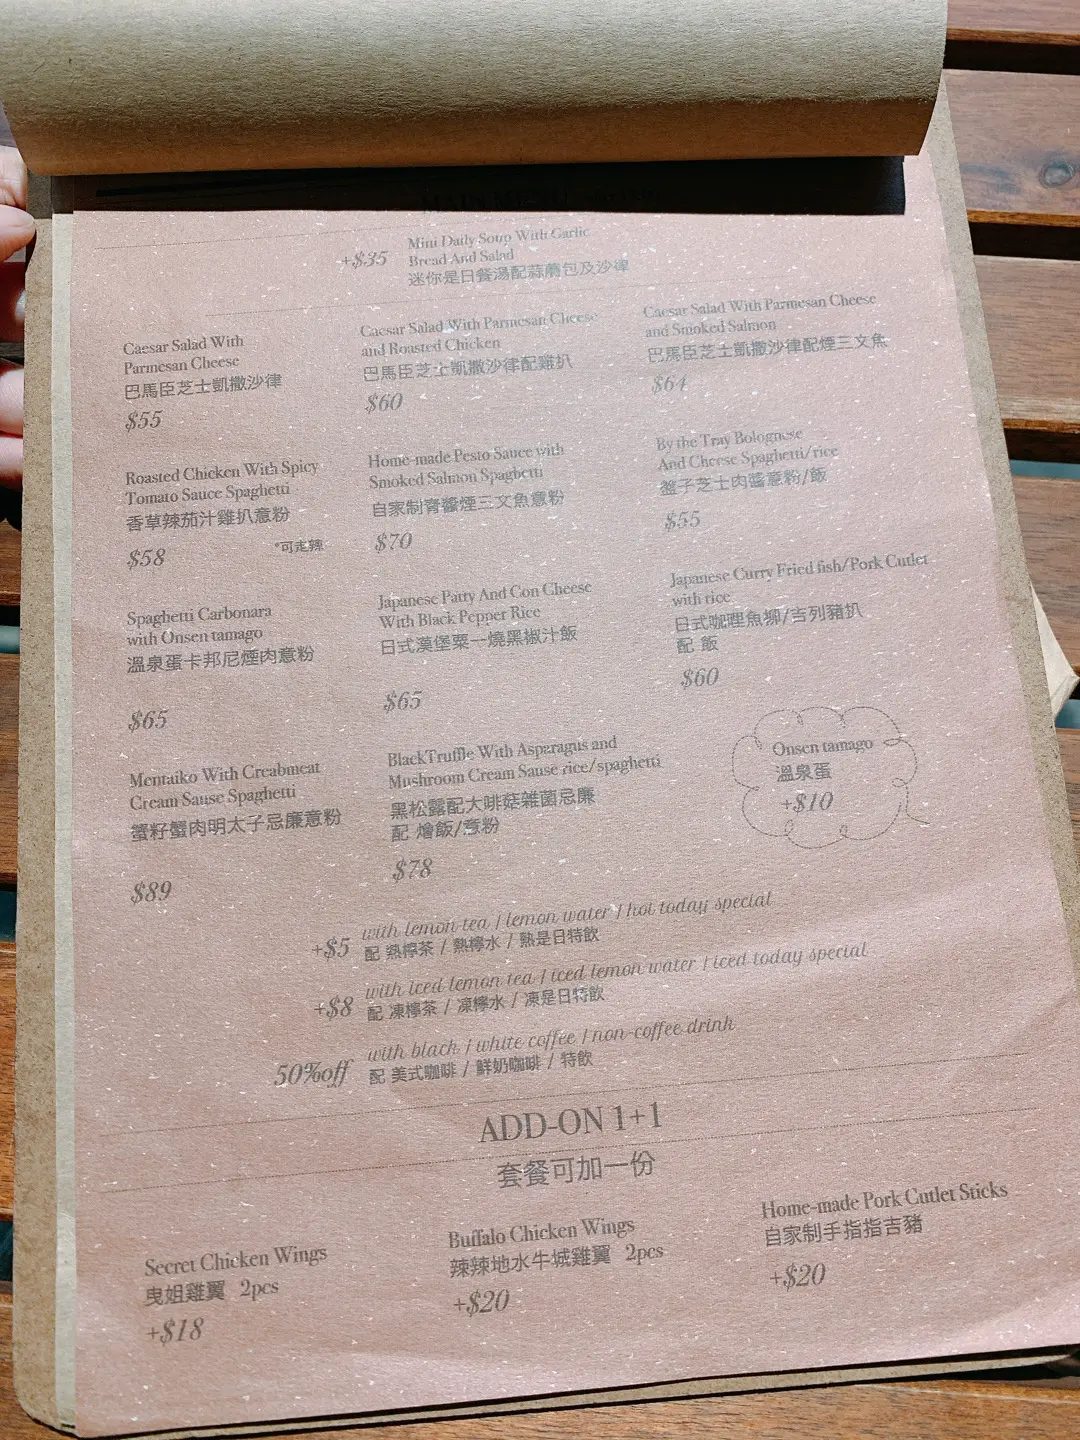 +$35
Mini Daily Soup With Garlic
Bread And Salad
迷你是日餐湯配蒜蓉包及沙律
Caesar Salad With
Parmesan Cheese
巴馬臣芝士凱撒沙律
$55
Caesar Salad With Parmesan Cheese
and Roasted Chicken
巴馬臣芝士凱撒沙律配雞扒
$60
Caesar Salad With Parmesan Cheese
and Smoked Salmon
巴馬臣芝士凱撒沙律配煙三文魚
$64
Roasted Chicken With Spicy
Tomato Sauce Spaghetti
香草辣茄汁雞扒意粉
$58
*可走辣
Home-made Pesto Sauce with
Smoked Salmon Spaghetti
自家制青醬煙三文魚意粉
$70
By the Tray Bolognese
And Cheese Spaghetti/rice
盤子芝士肉醬意粉/飯
$55
Spaghetti Carbonara
with Onsen tamago
溫泉蛋卡邦尼煙肉意粉
$65
Japanese Patty And Con Cheese
With Black Pepper Rice
日式漢堡粟一燒黑椒汁飯
$65
Japanese Curry Fried fish/Pork Cutlet
with rice
日式咖哩魚柳/吉列豬扒
配 飯
$60
Mentaiko With Creabmeat
Cream Sause Spaghetti
蟹籽蟹肉明太子忌廉意粉
$89
BlackTruffle With Asparagus and
Mushroom Cream Sause rice/spaghetti
黑松露配大啡菇雜菌忌廉
配 燴飯/意粉
$78
Onsen tamago
溫泉蛋
+$10
+$5
with lemon tea / lemon water / hot today special
配 熱檸茶 / 熱檸水 / 熱是日特飲
+$8
with iced lemon tea / iced lemon water / iced today special
配 凍檸茶 / 凍檸水 / 凍是日特飲
50%off
with black / white coffee / non-coffee drink
配 美式咖啡 / 鮮奶咖啡 / 特飲
ADD-ON 1+1
套餐可加一份
Secret Chicken Wings
曳姐雞翼 2pcs
+$18
Buffalo Chicken Wings
辣辣地水牛城雞翼 2pcs
+$20
Home-made Pork Cutlet Sticks
自家制手指指吉豬
+$20